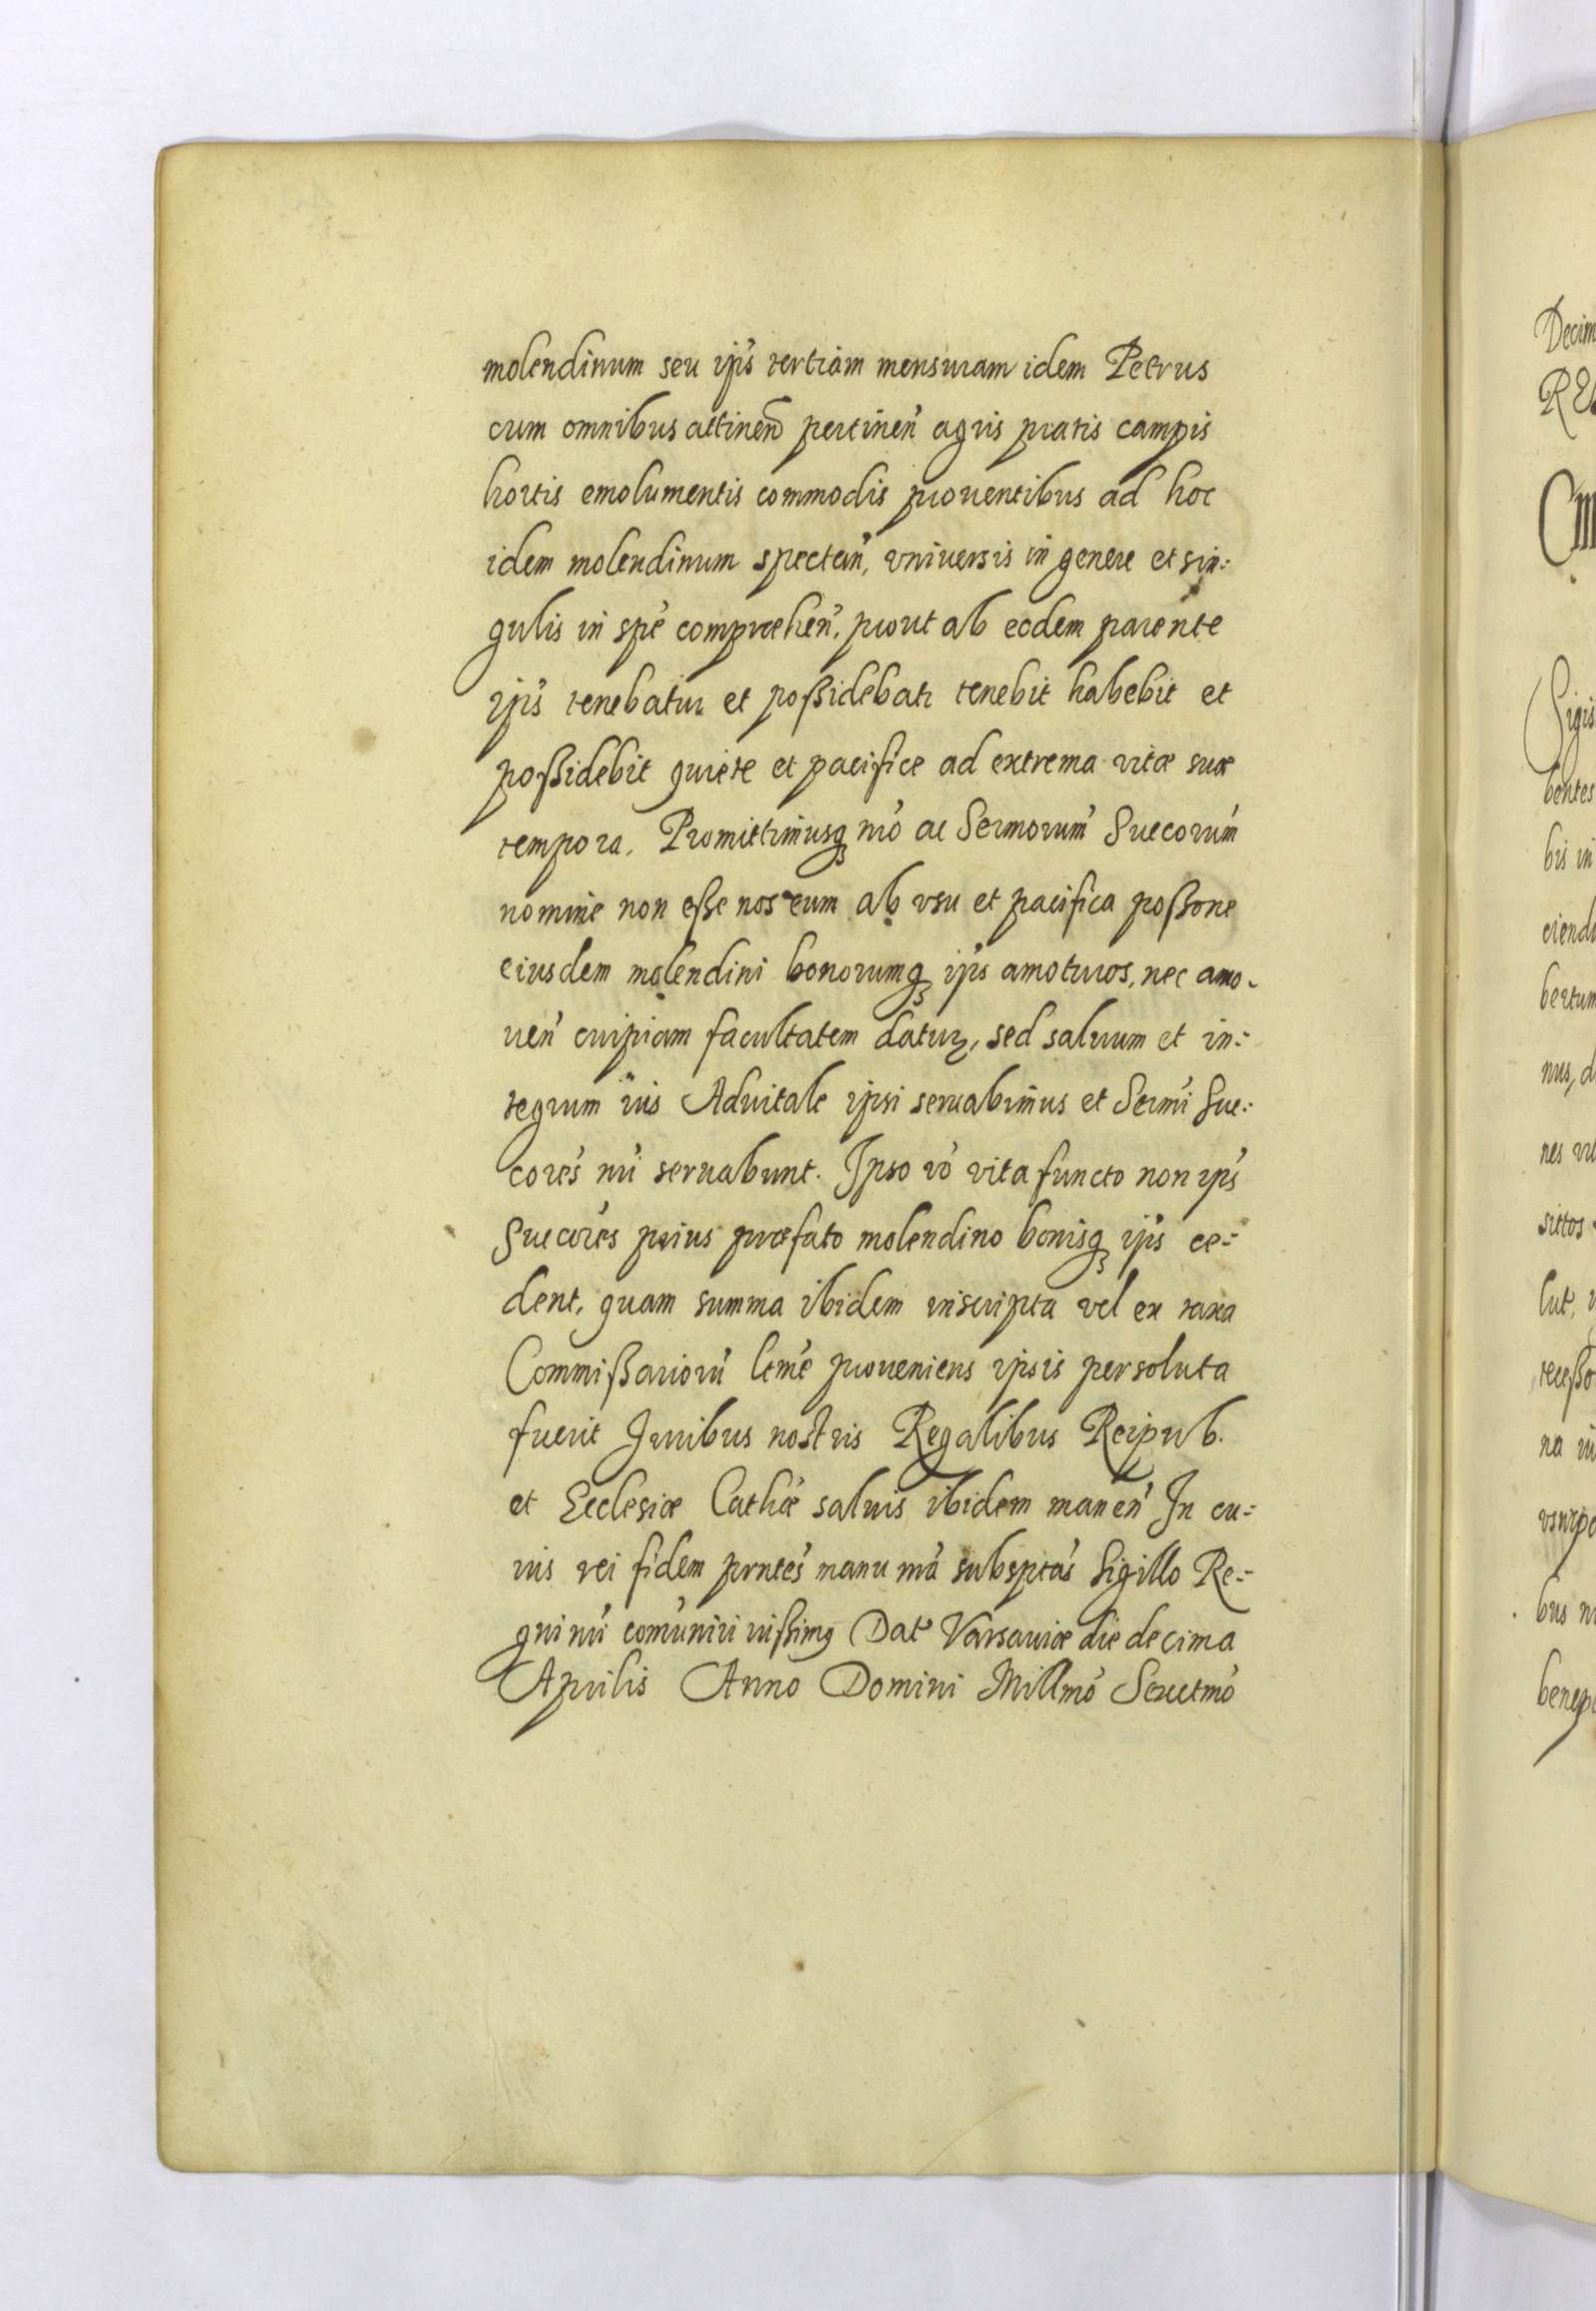 molendinum seu ip̄s tertiam mensuram idem Petrus
cum omnibus attineñ pertineñ agris pratis campis
hortis emolumentis commodis prouentibus ad hoc
idem molendinum spectañ, vniuersis in genere et sin-
gulis in sp̄e compræheñ, prout ab eodem parente
ip̄s tenebatur et poßidebatr tenebit habebit et
poßidebit quiete et pacifice ad extrema vitæ suæ
tempora. Promittimusq; nr̄o ac Sermorum̄ Succorum̄
nomine non eße nos eum ab vsu et pacifica poßone
eiusdem molendini bonorumq; ip̄s amoturos, nec amo-
ueñ cuipiam facultatem daturos, sed saluum et in-
tegrum ius Aduitale ipsi seruabimus et Sermi Suc-
cores nr̄i seruabunt. Ipso vo vita functo non ip̄s
Succores prius præfato molendino bonisq; ip̄s ce-
dent, quam summa ibidem inscripta vel ex taxa
Commißarioru ltme proueniens ipsis persoluta
fuerit Juribus nostris Regalibus Reipub.
et Ecclesiæ Cathæ saluis ibidem maneñ In cu-
ius rei fidem prntes manu nr̄a subsptas Sigillo Re-
gni nr̄i comuniri iußimq Dat Varsauiæ die decima
Aprilis Anno Domini Millmo Sexctmo
Decim
REG
Sigis
bentes
bis in
ciendu
bertum
nus, d
nes
sittos
lut,
receßo
na in
vsurpa
bus
benep